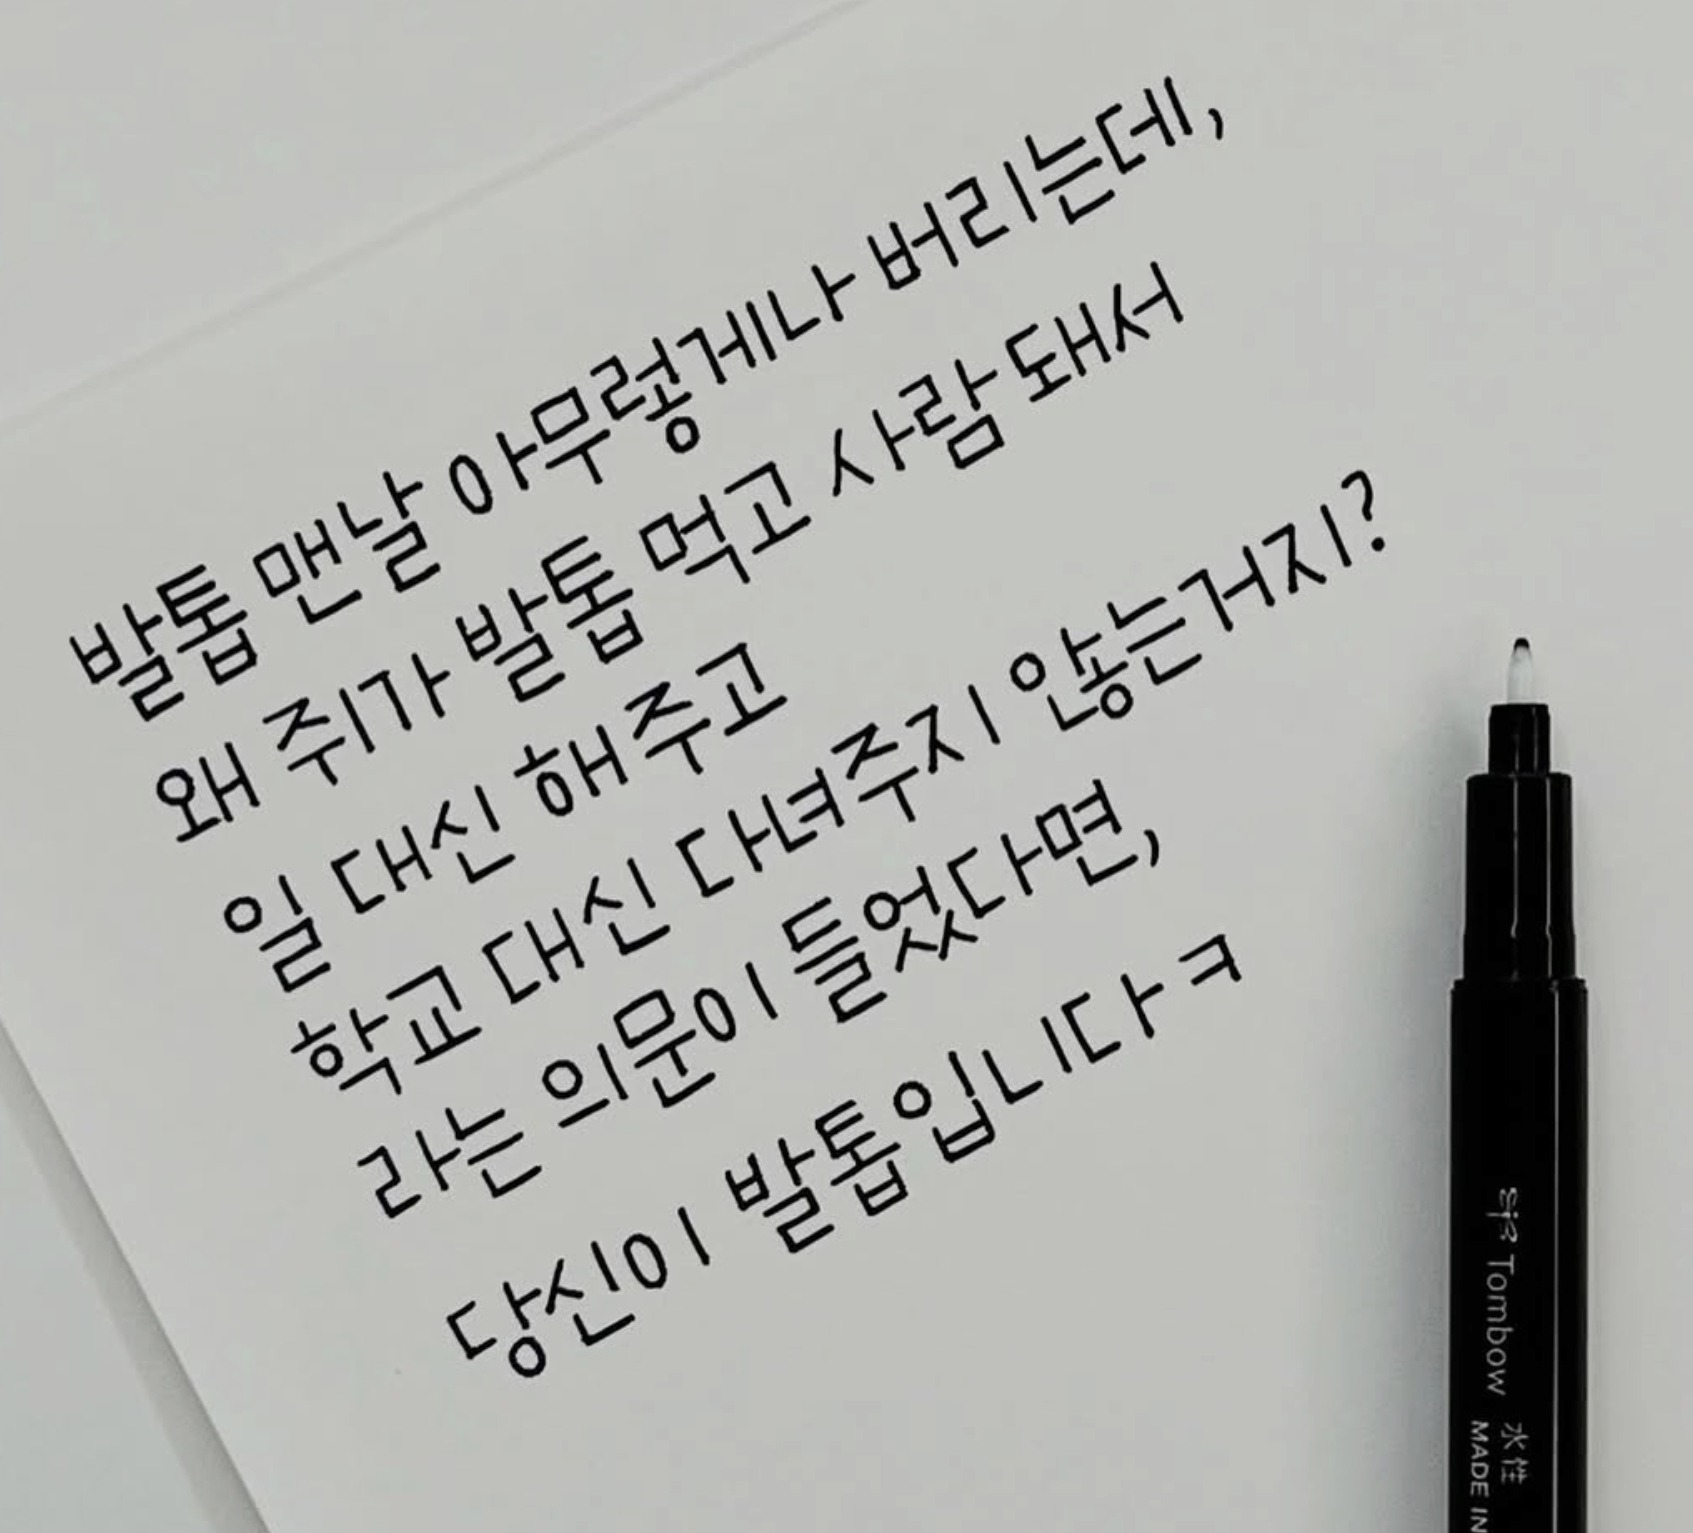 발톱 맨날 아무렇게나 버리는데,
왜 쥐가 발톱 먹고 사람 돼서
일 대신 해주고
학교 대신 다녀주지 않는거지?
라는 의문이 들었다면,
당신이 발톱입니다ㅋ
Tombow 水性
MADE IN